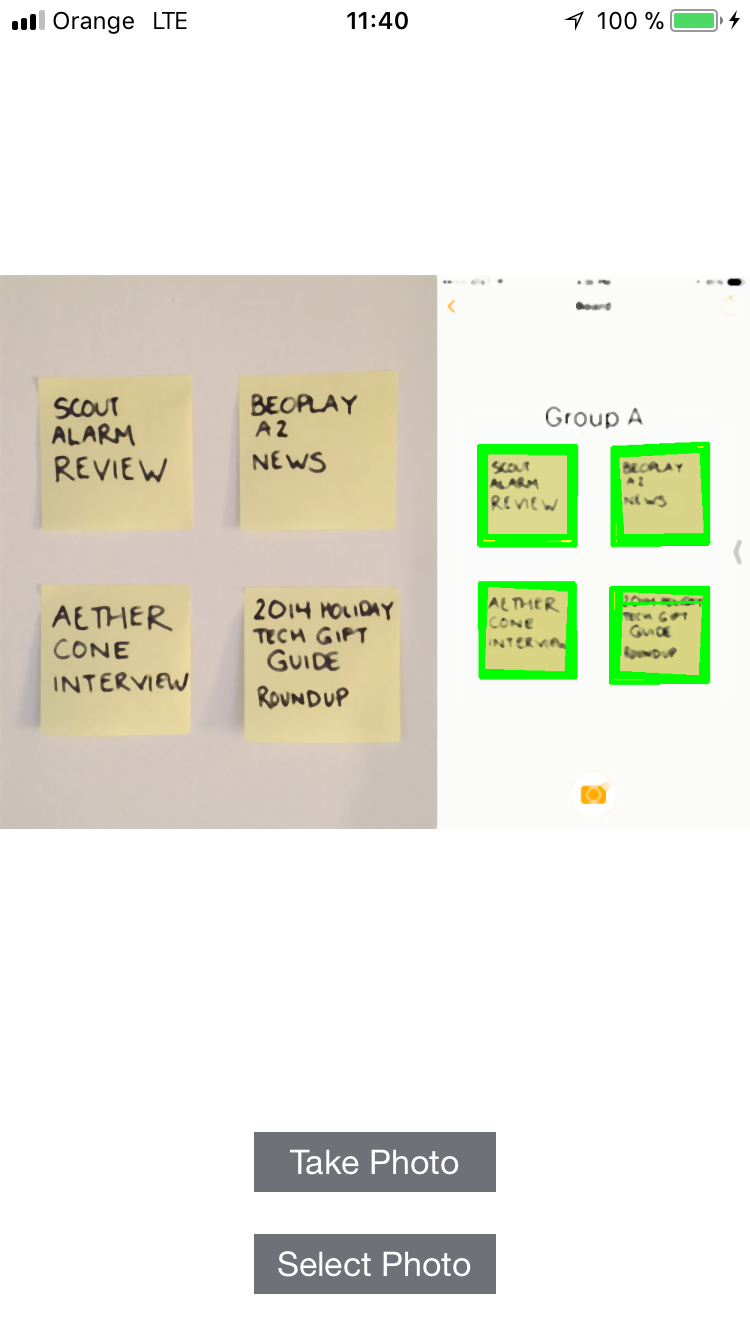 Orange LTE 11:40 100 %
SCOUT
ALARM
REVIEW
BEOPLAY
A2
NEWS
AETHER
CONE
INTERVIEW
2014 HOLIDAY
TECH GIFT
GUIDE
ROUNDUP
Board
Group A
SCOUT
ALARM
REVIEW
BEOPLAY
A2
NEWS
AETHER
CONE
INTERVIEW
2014 HOLIDAY
TECH GIFT
GUIDE
ROUNDUP
Take Photo
Select Photo